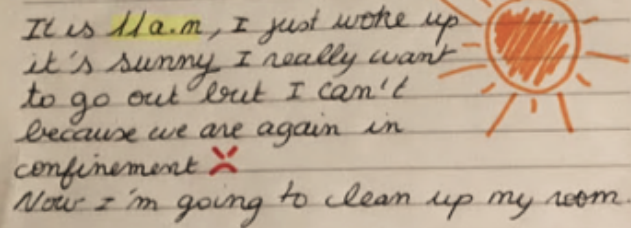 It is 11a.m, I just woke up
it's sunny I really want
to go out but I can't
because we are again in
confinement
Now I'm going to clean up my room.